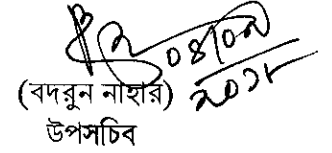 ০৪/০৯
২০১৮
(বদরুন নাহার)
উপসচিব